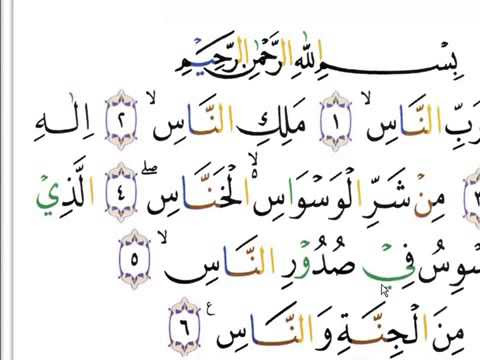 بِسْمِ اللّٰهِ الرَّحْمٰنِ الرَّحِيْمِ
رَبِّ النَّاسِۙ ١ مَلِكِ النَّاسِۙ ٢ اِلٰهِ
٣ مِنْ شَرِّ الْوَسْوَاسِ ەۙ الْخَنَّاسِۖ ٤ الَّذِيْ
سْوِسُ فِيْ صُدُوْرِ النَّاسِۙ ٥
مِنَ الْجِنَّةِ وَالنَّاسِ ࣖ ٦